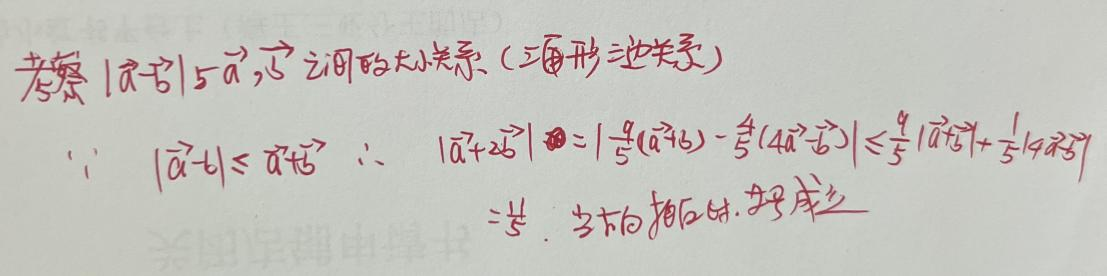 考察 |a⃗-b⃗| 与 a⃗,b⃗ 之间的大小关系 (三角形三边关系)
∵ |a⃗-b| ≤ a⃗+b⃗ ∴ |a⃗+2b⃗| = |9/5(a⃗+b) - 4/5(4a⃗-b⃗)| ≤ 9/5|a⃗+b⃗| + 1/5|4a⃗-b⃗|
= 11/5 . 当方向相反时.等号成立